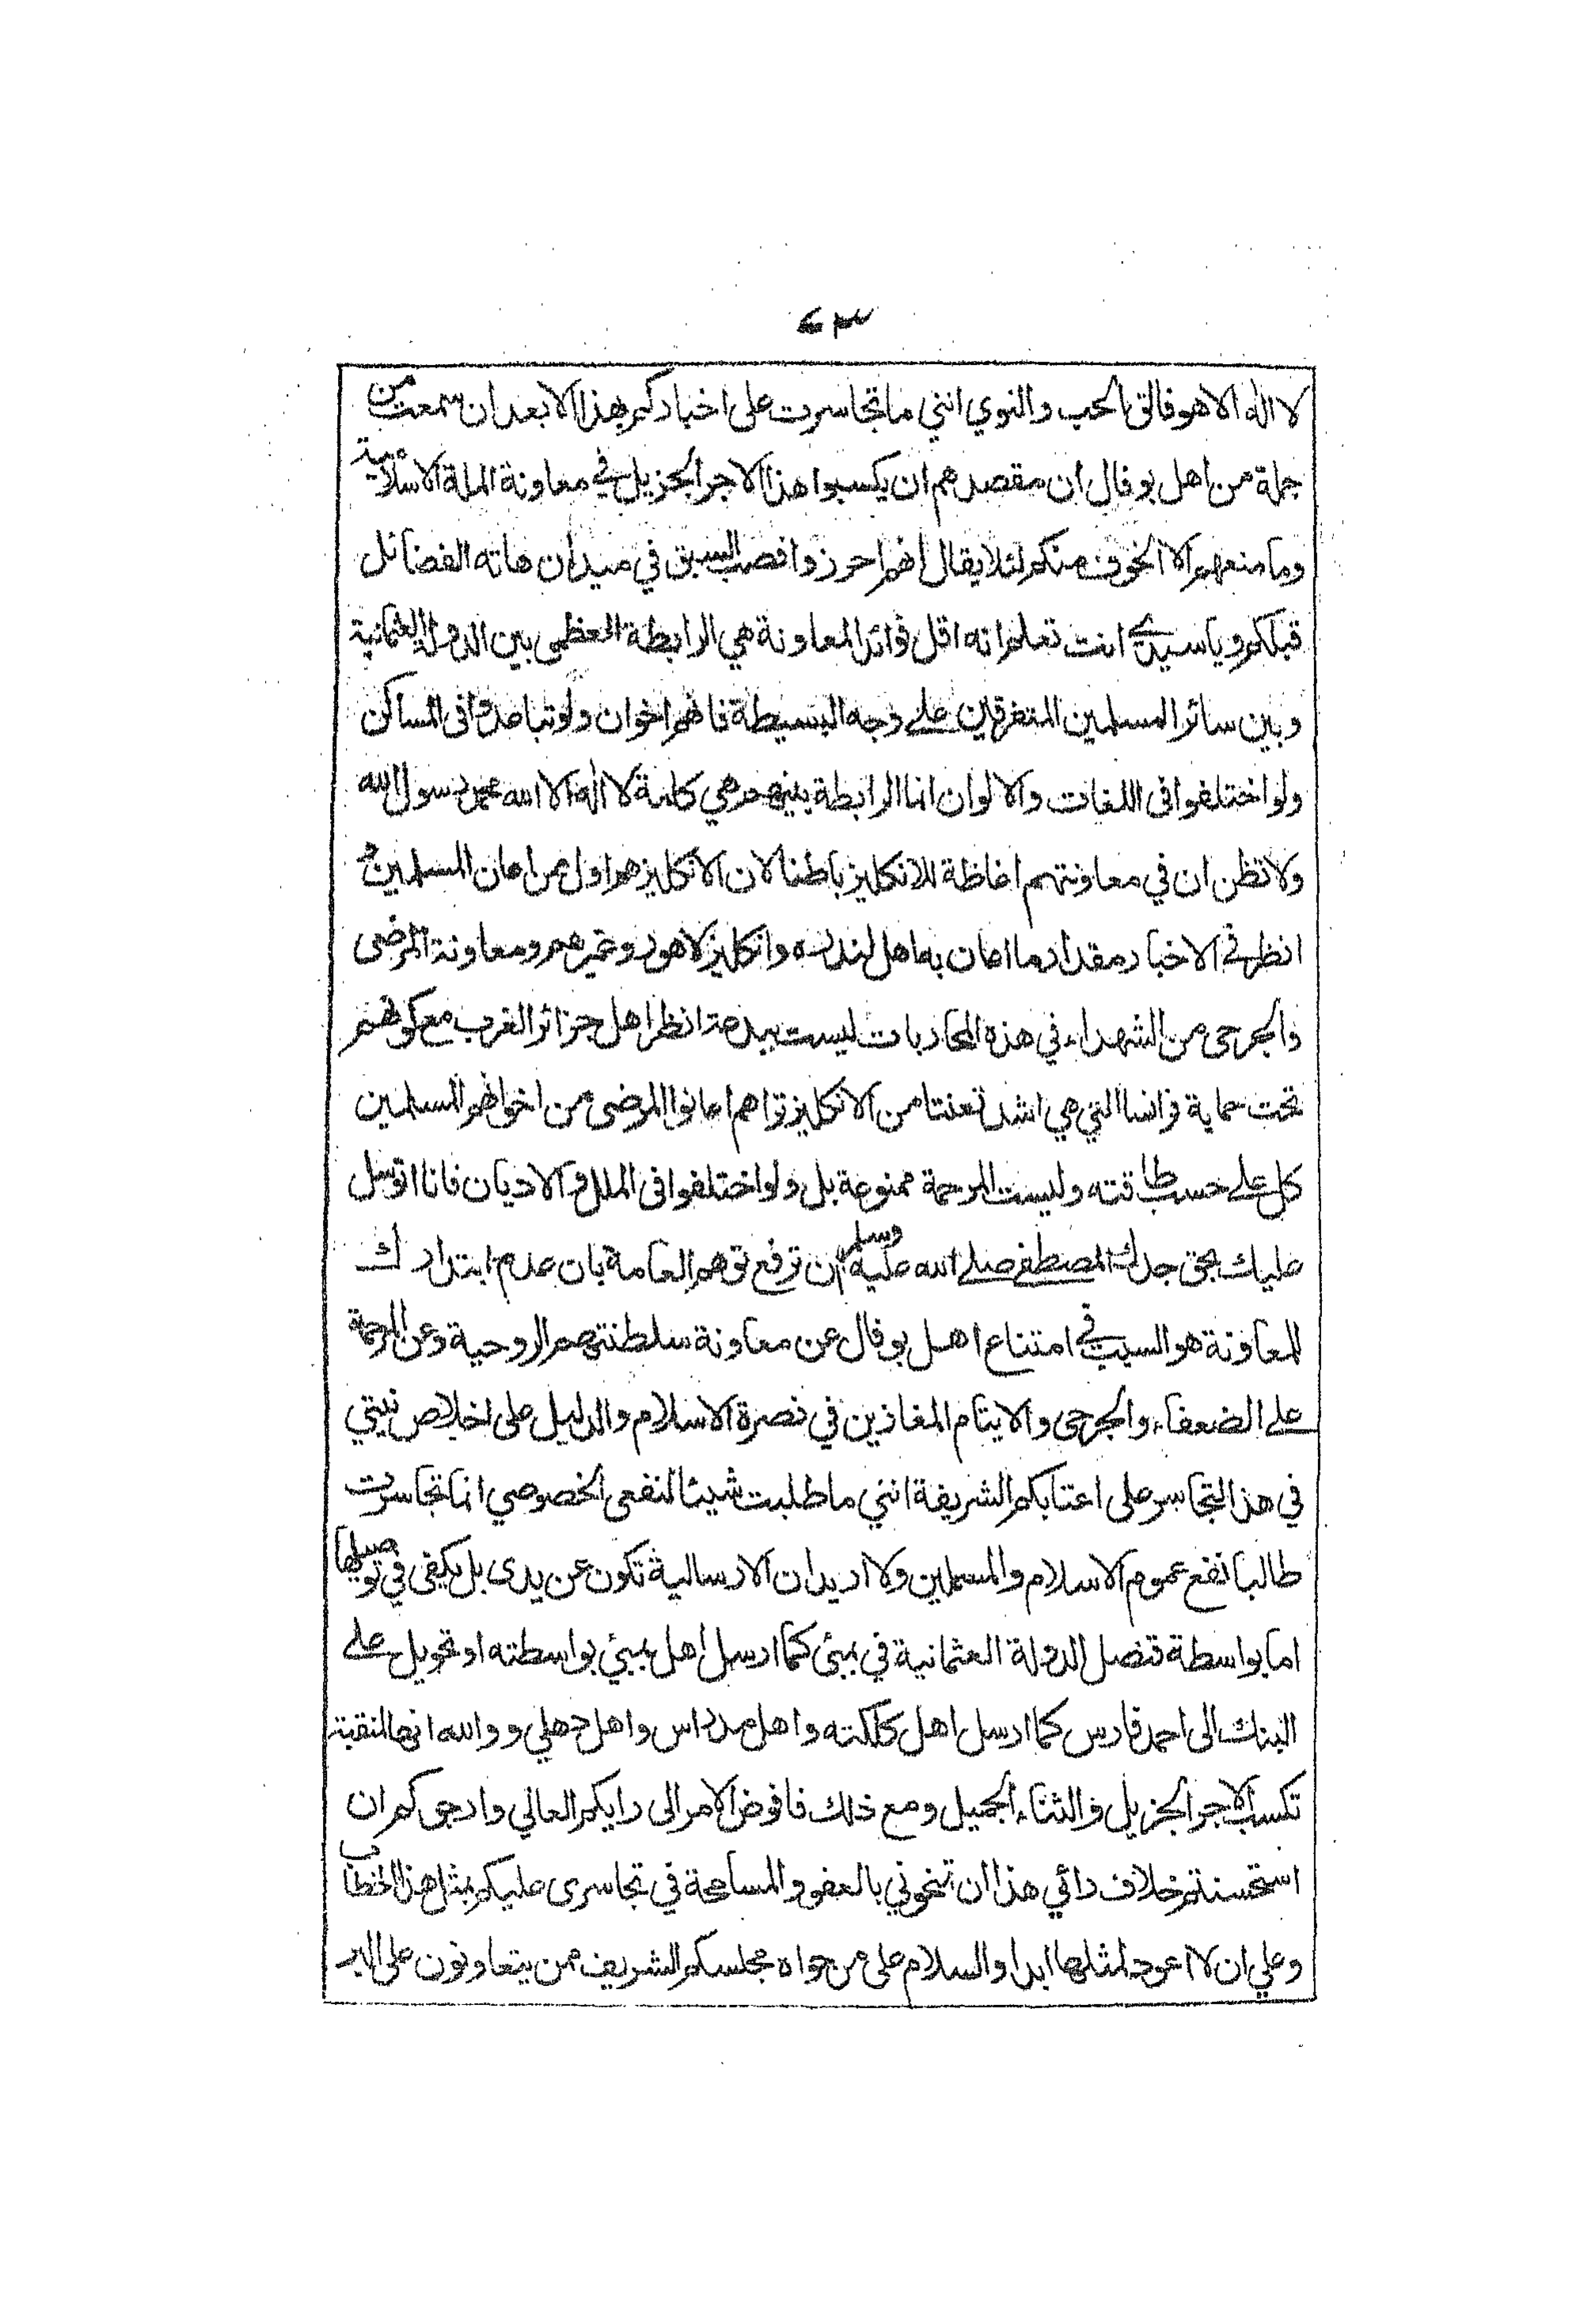 ٤٣
لا اله الا هو فالق الحب والنوي انني ما تجاسرت على اخباركم بهذا الا بعد ان سمعت من
جملة من اهل بوفال ان مقصدهم ان يكسبوا هذا الاجر الجزيل في معاونة الملة الاسلامية
وما منعهم الا الخوف منكم لئلا يقال انهم احرزوا قصب السبق في ميدان هاته الفضائل
قبلكم ويا سيدي انت تعلم انه اقل فوائد المعاونة هي الرابطة العظمى بين الدولة العثمانية
وبين سائر المسلمين المتفرقين على وجه البسيطة فانهم اخوان ولو تباعدوا فى المساكن
ولو اختلفوا فى اللغات والالوان انما الرابطة بينهم هي كلمة لا اله الا الله محمد رسول الله
ولا تظن ان في معاونتهم اغاظة للانكليز باطنا لان الانكليز هم اول من اعان المسلمين و
انظر في الاخبار مقدار ما اعان به اهل لندره وانكليز لاهور وغيرهم ومعاونة المرضى
والجرحى من الشهداء في هذه المحاربات ليست ببدعة انظر اهل جزائر الغرب مع كونهم
تحت حماية فرانسا التي هي اشد تعنتا من الانكليز تراهم اعانوا المرضى من اخوانهم المسلمين
كل على حسب طاقته وليست المرحمة ممنوعة بل ولو اختلفوا فى الملل والاديان فانا اتوسل
عليك بحق جدك المصطفى صلى الله عليه وسلم ان ترفع توهم العامة بان عدم ابتدارك
للمعاونة هو السبب في امتناع اهل بوفال عن معاونة سلطنتهم الروحية وعن المرحمة
على الضعفاء والجرحى والايتام المغازين في نصرة الاسلام والدليل على اخلاص نيتي
في هذا التجاسر على اعتابكم الشريفة انني ما طلبت شيئا لنفعى الخصوصي انما تجاسرت
طالبا نفع عموم الاسلام والمسلمين ولا اريد ان الارسالية تكون عن يدى بل يكفى في توصيلها
اما بواسطة قنصل الدولة العثمانية في بمبئ كما ارسل اهل بمبئي بواسطته او تحويل على
البنك الى احمد فارس كما ارسل اهل كلكته واهل مدراس واهل دهلي ووالله انها لمنقبة
تكسب الاجر الجزيل والثناء الجميل ومع ذلك فافوض الامر الى رايكم العالي وارجوكم ان
استحسنتم خلاف رائي هذا ان تمنحوني بالعفو والمسامحة في تجاسرى عليكم بمثل هذا الخطاب
وعلي ان لا اعود لمثلها ابدا والسلام على من حواه مجلسكم الشريف ممن يتعاونون على البر